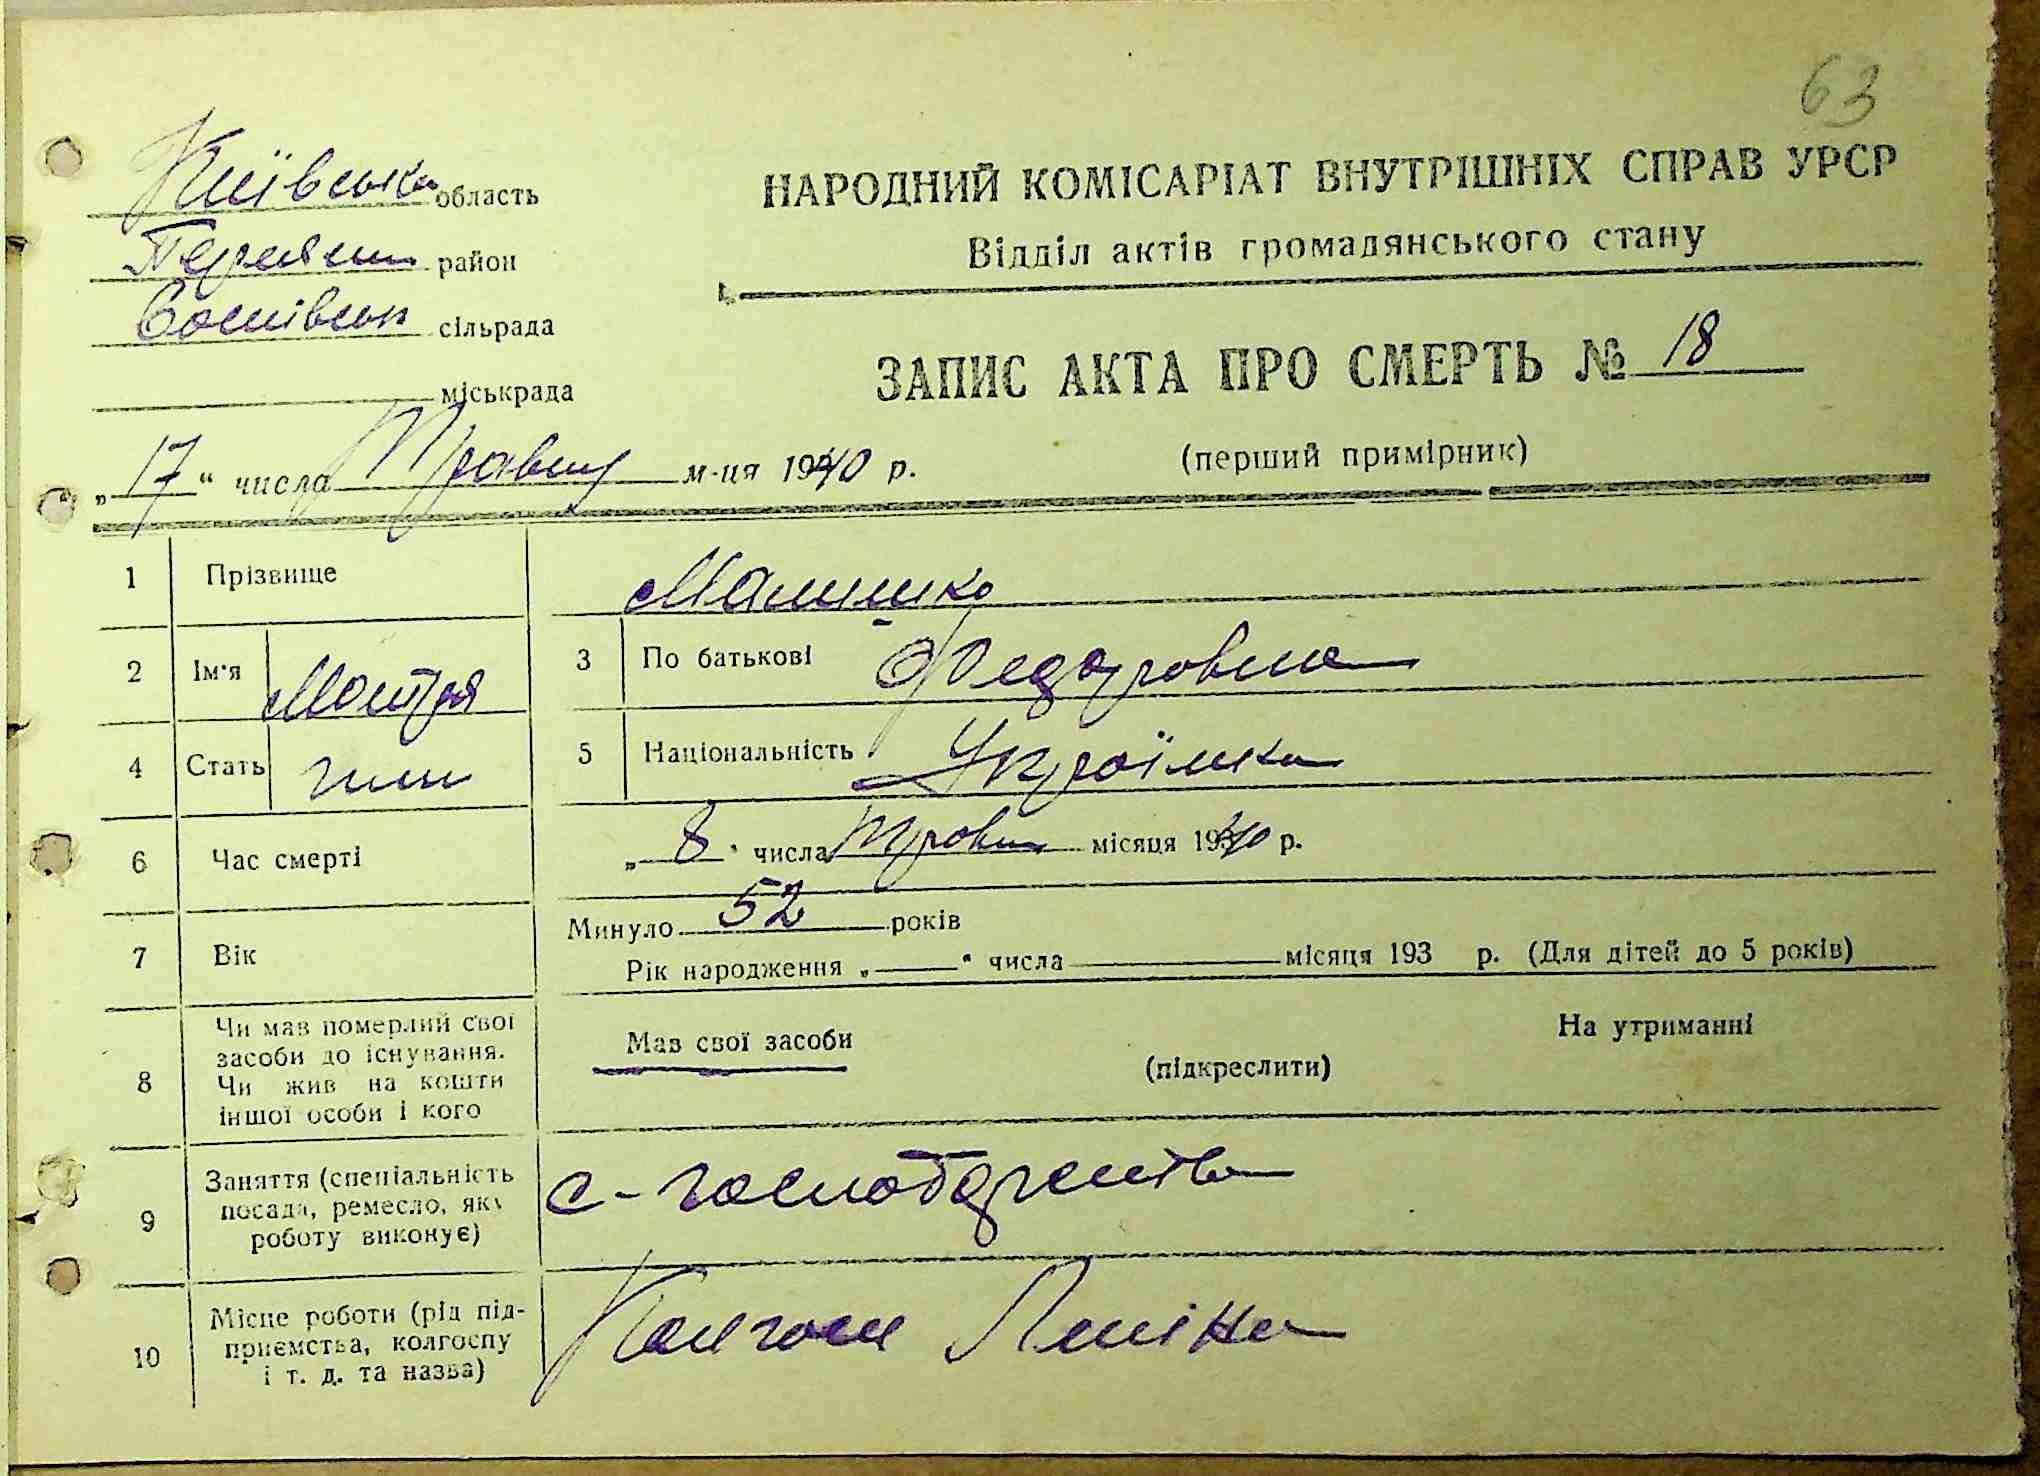 63
Київська область
НАРОДНИЙ КОМІСАРІАТ ВНУТРІШНІХ СПРАВ УРСР
район
Відділ актів громадянського стану
сільрада
ЗАПИС АКТА ПРО СМЕРТЬ № 18
міськрада
„17“ числа Травня м-ця 1940 р.
(перший примірник)
1 Прізвище Малишко
2 Ім'я Мотря 3 По батькові Федоровна
4 Стать жін 5 Національність Українка
6 Час смерті „8“ числа Травня місяця 1940 р.
7 Вік Минуло 52 років
Рік народження „ “ числа місяця 193 р. (Для дітей до 5 років)
8 Чи мав померлий свої
засоби до існування.
Чи жив на кошти
іншої особи і кого
Мав свої засоби
(підкреслити)
На утриманні
9 Заняття (спеціальність
посада, ремесло, яку
роботу виконує)
с-господарства
10 Місце роботи (рід під-
приємства, колгоспу
і т. д. та назва)
Колгосп Леніна